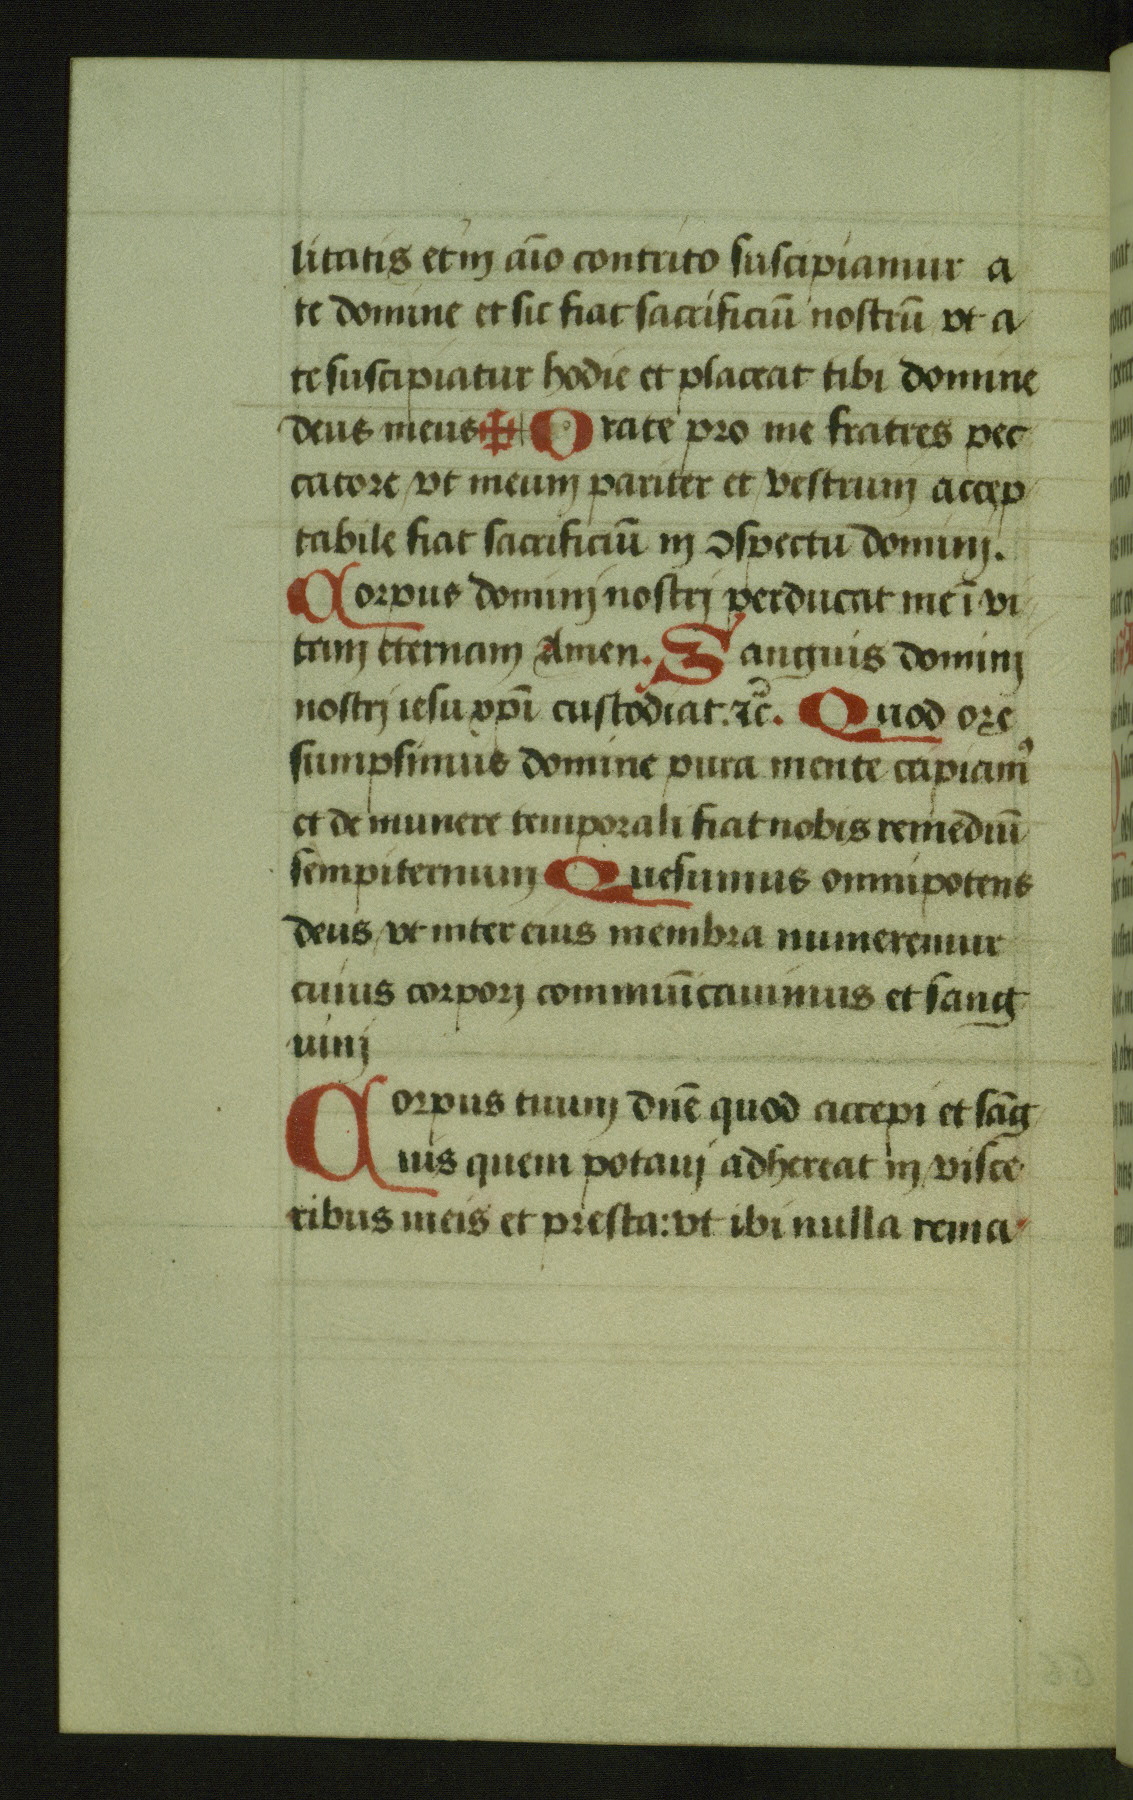 litatis et in aīo contrito suscipiamur a
te domine et sic fiat sacrificiū nostrū vt a
te suscipiatur hodie et placeat tibi domine
deus meus ✠ Orate pro me fratres pec
catore vt meum pariter et vestrum accep
tabile fiat sacrificiū in ↄspectu dominj.
Corpus dominj nostrj perducat me ī vi
tam eternam Amen. Sanguis dominj
nostrj iesu xp̄i custodiat. ⁊c̄. Quod ore
sumpsimus domine pura mente capiamꝰ
et de munere temporali fiat nobis remediū
sempiternum Quesumus omnipotens
deus vt inter eius membra numeremur
cuius corporj commūicauimus et sang
uinj
Corpus tuum dn̄e quod accepi et sāg
uis quem potauj adhereat in visce
ribus meis et presta: vt ibi nulla rema